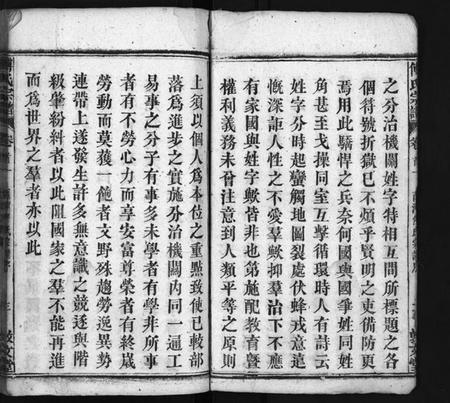 之分治機關姓字特相互間所標題之各
個符號折獄已不煩乎賢明之吏備防更
焉用此驕悍之兵奈何國與國爭姓與姓
角甚至戈操同室互擊循環時人有詩云
姓字分時起蠻觸地圖裂處伏蜂戎意遠
慨深詎人性之不愛羣歟抑羣治下不應
有家國與姓字歟皆非也第施配教育暨
權利義務未曾注意到人類平等之原則
上須以個人為本位之重點致使已較部
落為進步之實施分治機關內同一逼工
易事之分子有事多未學者有學非所事
者有不勞心力而享安富尊榮者有終歲
勞動而莫獲一飽者文野殊趨勞逸異勢
連帶上遂發生許多無意識之競逐與階
級肇紛糾者以此阻國家之羣不能再進
而為世界之羣者亦以此